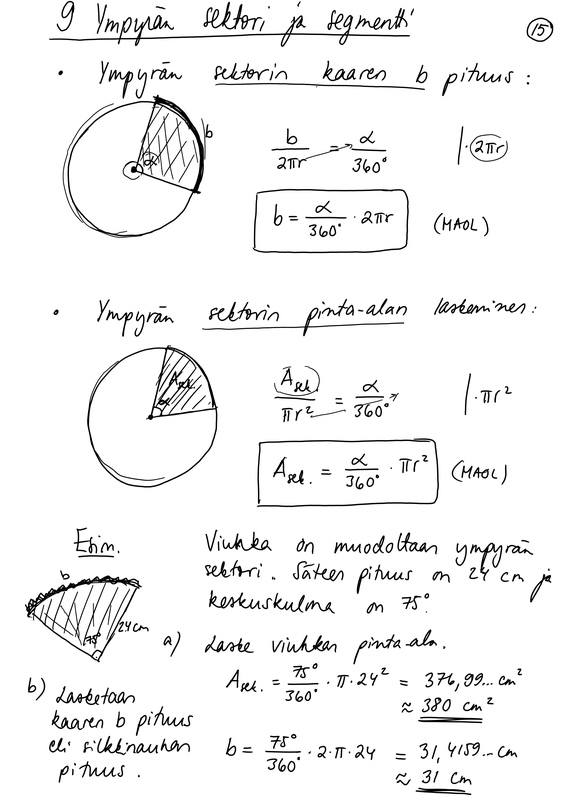 9 Ympyrän sektori ja segmentti
15
• Ympyrän sektorin kaaren b pituus :
b
α
b/2πr = α/360° |·2πr
b = α/360° · 2πr (MAOL)
• Ympyrän sektorin pinta-alan laskeminen :
Asek.
α
Asek./πr² = α/360° |·πr²
Asek. = α/360° · πr² (MAOL)
Esim.
b
24 cm
75°
Viuhka on muodoltaan ympyrän
sektori. Säteen pituus on 24 cm ja
keskuskulma on 75°.
a) Laske viuhkan pinta-ala.
Asek. = 75°/360° · π · 24² = 376,99... cm²
≈ 380 cm²
b) Lasketaan
kaaren b pituus
eli silkkinauhan
pituus.
b = 75°/360° · 2 · π · 24 = 31,4159... cm
≈ 31 cm